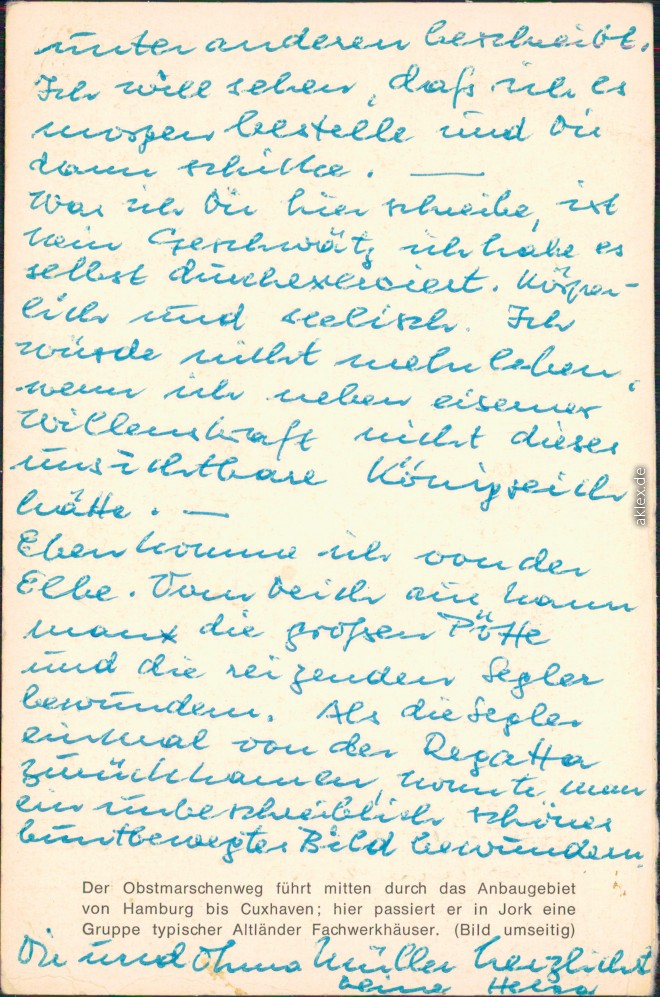 unter anderen beschreibt.
Ich will sehen, daß ich es
morgen bestelle und Dir
dann schicke. —
Was ich Dir hier schreibe, ist
kein Geschwätz ich habe es
selbst durchexerziert. Körper-
lich und seelisch. Ich
würde nicht mehr leben,
wenn ich neben eiserner
Willenskraft nicht dieses
unsichtbare Königreich
hätte. —
Eben komme ich von der
Elbe. Vom Deich aus kann
man die großen Pötte
und die reizenden Segler
bewundern. Als die Segler
einmal von der Regatta
zurückkamen, konnte man
ein unbeschreiblich schönes
buntbewegtes Bild bewundern.
Der Obstmarschenweg führt mitten durch das Anbaugebiet
von Hamburg bis Cuxhaven; hier passiert er in Jork eine
Gruppe typischer Altländer Fachwerkhäuser. (Bild umseitig)
Dir und Müller herzlichst
Deine
aklex.de